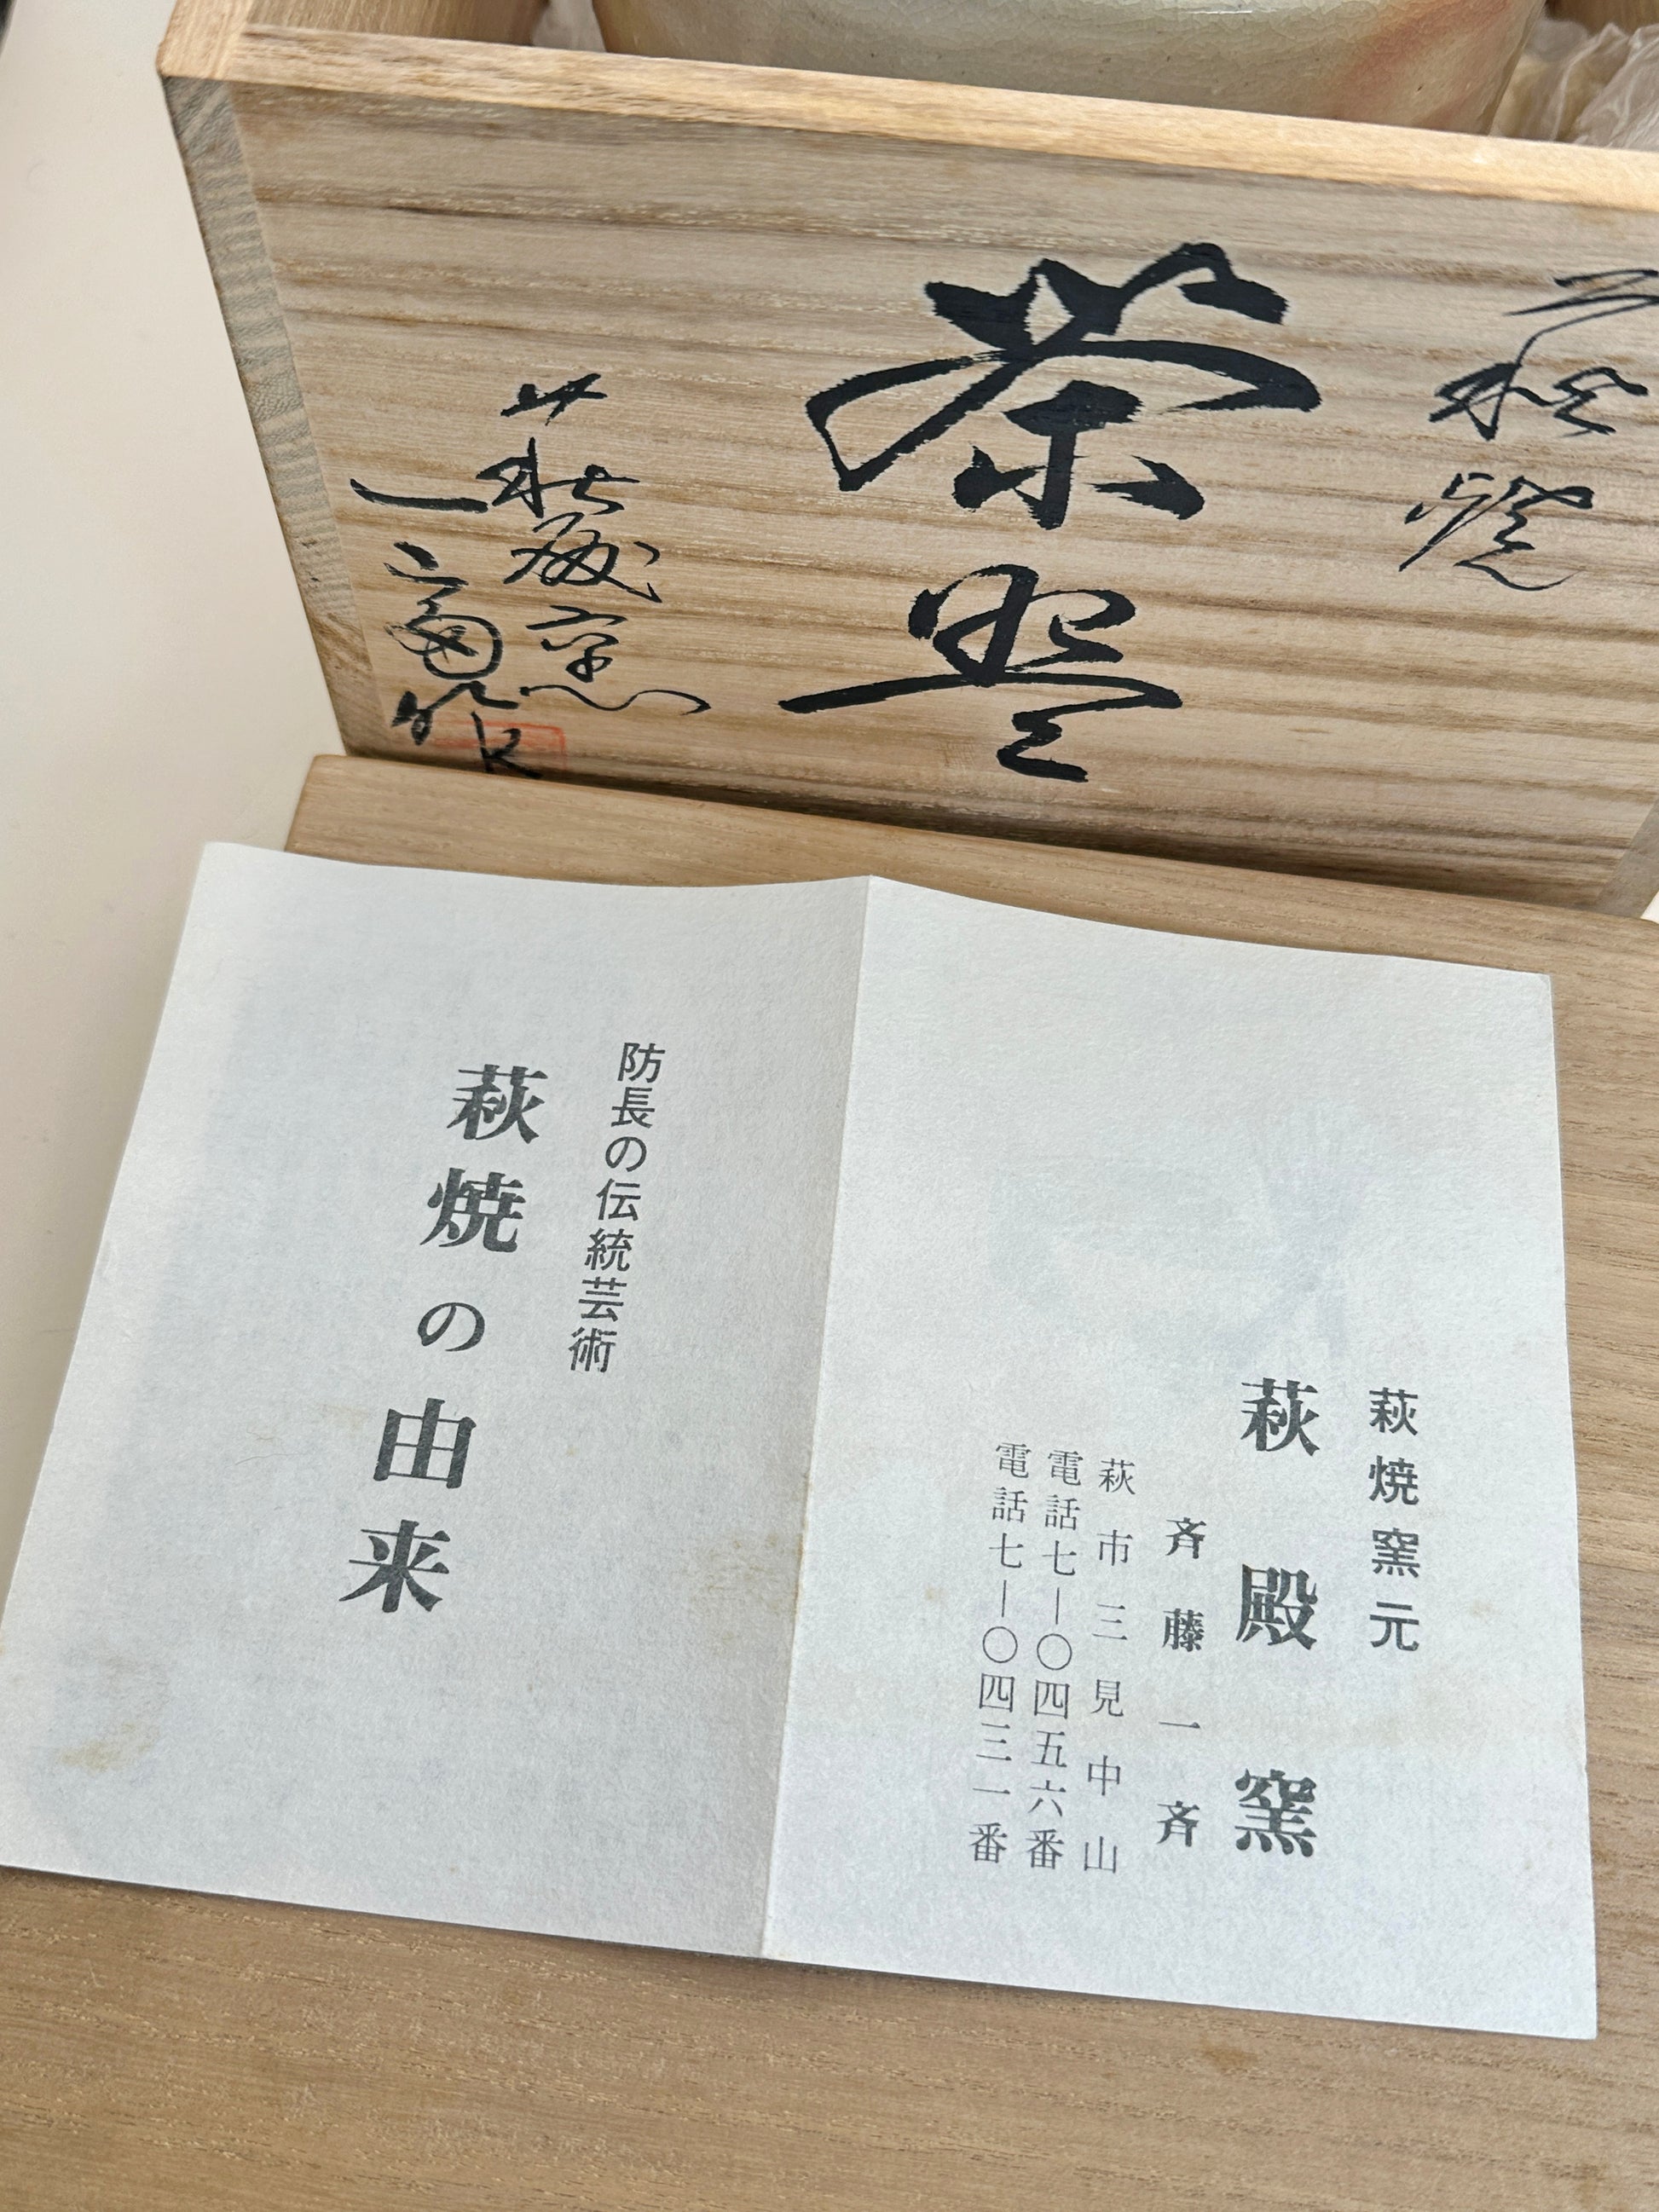 萩焼
茶碗
萩殿窯
一斉作
萩焼窯元
萩殿窯
斉藤一斉
萩市三見中山
電話七―〇四五六番
電話七―〇四三一番
防長の伝統芸術
萩焼の由来